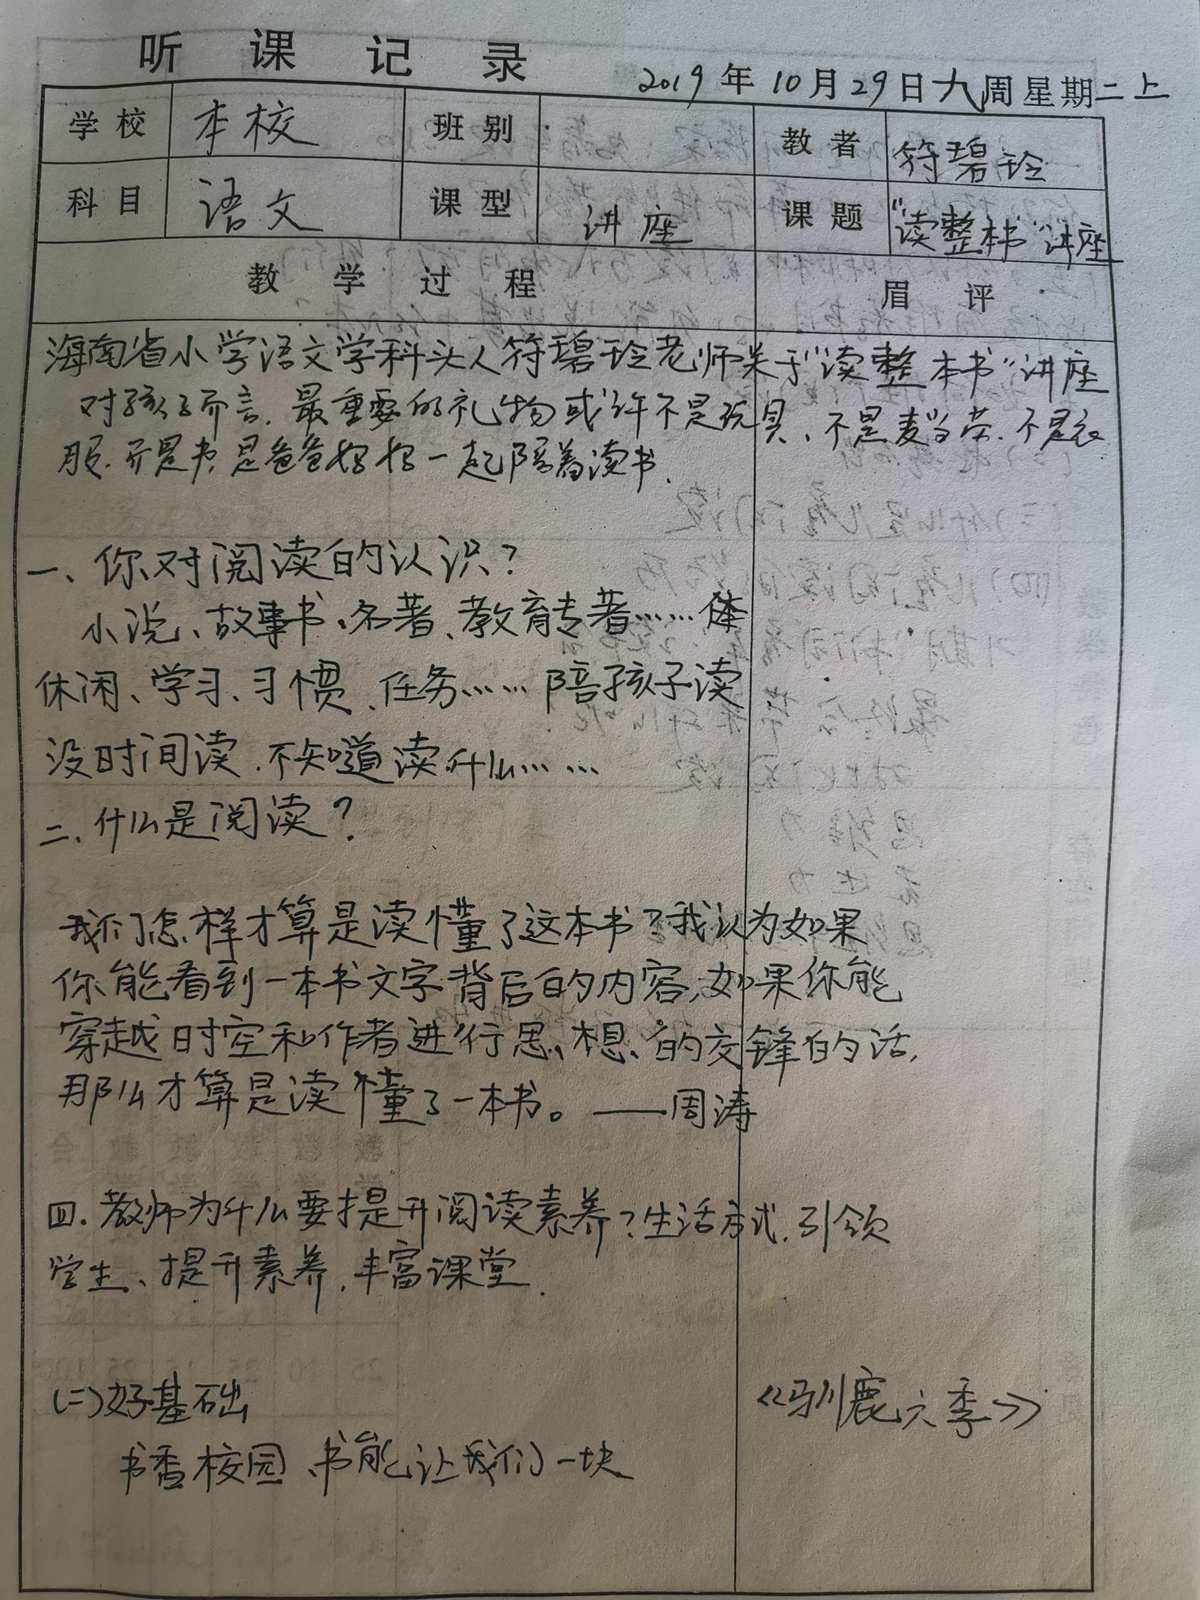 听课记录
2019年10月29日九周星期二上
学校 本校 班别 教者 符碧玲
科目 语文 课型 讲座 课题 “读整本书”讲座
教学过程 眉评
海南省小学语文学科头人符碧玲老师关于“读整本书”讲座
对孩子而言、最重要的礼物或许不是玩具、不是麦当劳、不是衣
服、而是书、是爸爸妈妈一起陪着读书.
一、你对阅读的认识？
小说、故事书、名著、教育专著……体
休闲、学习、习惯、任务……陪孩子读
没时间读、不知道读什么……
二、什么是阅读？
我们怎样才算是读懂了这本书？我认为如果
你能看到一本书文字背后的内容，如果你能
穿越时空和作者进行思、想、的交锋的话，
那么才算是读懂了一本书。——周涛
四.教师为什么要提升阅读素养？生活方式、引领
学生、提升素养、丰富课堂.
(二)好基础
《驯鹿六季》
书香校园、书能让我们一块